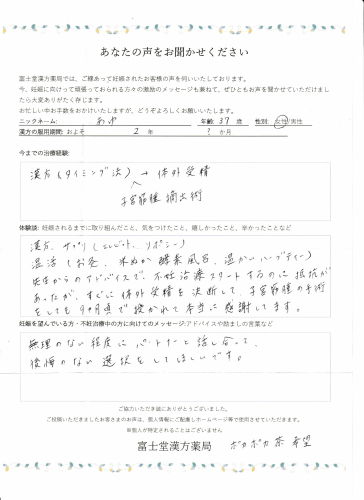 あなたの声をお聞かせください
富士堂漢方薬局では、ご縁あって妊娠されたお客様の声を伺いいたしております。
今、妊娠に向けって頑張っておられる方々の激励のメッセージも兼ねて、ぜひともお声を聞かせていただけまし
たら大変ありがたく存じます。
お忙しい中お手数をおかけいたしますが、どうぞよろしくお願いいたします。
ニックネーム: あゆ 年齢: 37 歳 性別: 女性 男性
漢方の服用期間: およそ 2 年 ? か月
今までの治療経験:
漢方 (タイミング法) → 体外受精
子宮筋腫摘出術
体験談: 妊娠されるまでに取り組んだこと、気をつけたこと、嬉しかったこと、辛かったことなど
漢方、サプリ
温活 (お灸、米ぬか酵素風呂、温かいハーブティー)
先生からのアドバイスで、不妊治療スタートするのに抵抗が
あったが、すぐに体外受精を決断して、子宮筋腫の手術
をしても9ヶ月で授かれて本当に感謝してます。
妊娠を望んでいる方・不妊治療中の方に向けてのメッセージ:アドバイスや励ましの言葉など
無理のない程度にパートナーと話し合って、
後悔のない選択をしてほしいです。
ご協力いただき誠にありがとうございました。
ご投稿いただきましたお客さまのお声は、個人情報にご配慮しホームページ等で使用させていただきます。
※個人が特定されることはございません
富士堂漢方薬局 ポカポカ茶 希望